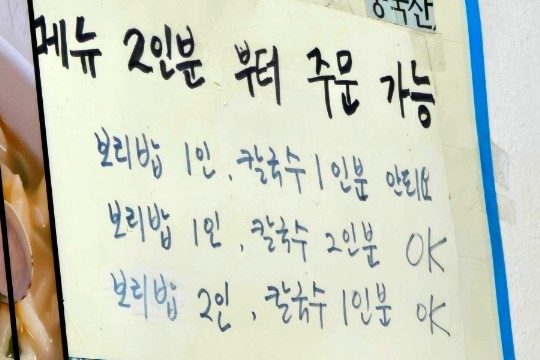 중국산
메뉴 2인분 부터 주문 가능
보리밥 1인, 칼국수 1인분 안되요
보리밥 1인, 칼국수 2인분 OK
보리밥 2인, 칼국수 1인분 OK